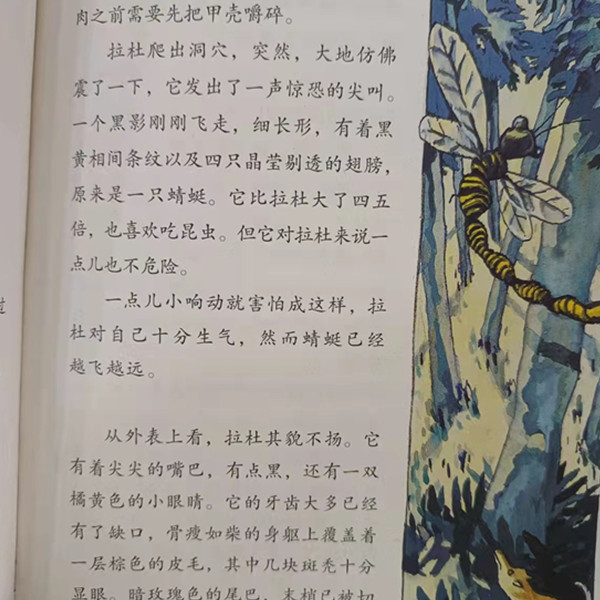 肉之前需要先把甲壳嚼碎。
拉杜爬出洞穴，突然，大地仿佛
震了一下，它发出了一声惊恐的尖叫。
一个黑影刚刚飞走，细长形，有着黑
黄相间条纹以及四只晶莹剔透的翅膀，
原来是一只蜻蜓。它比拉杜大了四五
倍，也喜欢吃昆虫。但它对拉杜来说一
点儿也不危险。
一点儿小响动就害怕成这样，拉
杜对自己十分生气，然而蜻蜓已经
越飞越远。
从外表上看，拉杜其貌不扬。它
有着尖尖的嘴巴，有点黑，还有一双
橘黄色的小眼睛。它的牙齿大多已经
有了缺口，骨瘦如柴的身躯上覆盖着
一层棕色的皮毛，其中几块斑秃十分
显眼。暗玫瑰色的尾巴，末梢已被切